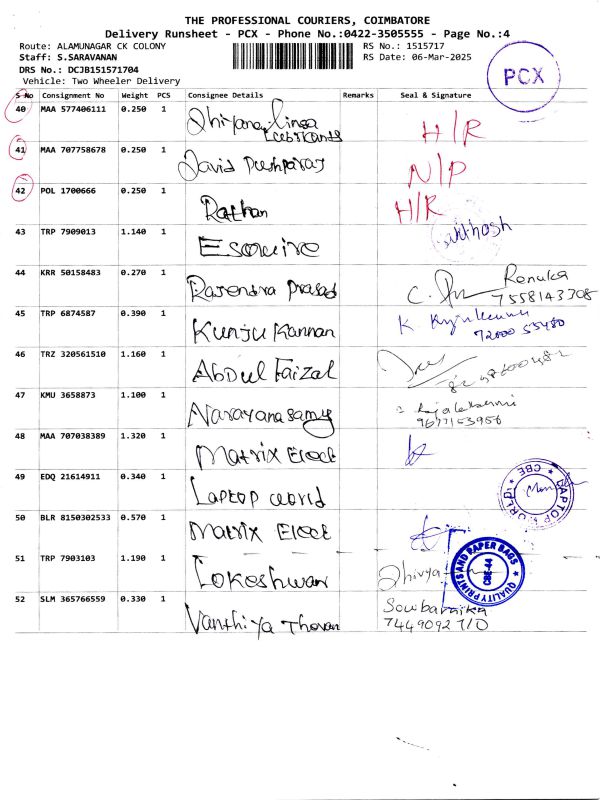 THE PROFESSIONAL COURIERS, COIMBATORE
Delivery Runsheet - PCX - Phone No.:0422-3505555 - Page No.:4
Route: ALAMUNAGAR CK COLONY
RS No.: 1515717
Staff: S.SARAVANAN
RS Date: 06-Mar-2025
DRS No.: DCJB151571704
Vehicle: Two Wheeler Delivery
PCX
S No Consignment No Weight PCS Consignee Details Remarks Seal & Signature
40 MAA 577406111 0.250 1 H/R
41 MAA 707758678 0.250 1 David Pushparaj N/P
42 POL 1700666 0.250 1 Rathan H/R
43 TRP 7909013 1.140 1 Esquire
44 KRR 50158483 0.270 1 Rajendra Prasad Renuka
7558143708
45 TRP 6874587 0.390 1 Kunju Kannan K
46 TRZ 320561510 1.160 1 Abdul Faizal
47 KMU 3658873 1.100 1 Narayanasamy
9677153956
48 MAA 707038389 1.320 1 Matrix Elect
49 EDQ 21614911 0.340 1 Laptop World LAPTOP WORLD CBE
50 BLR 8150302533 0.570 1 Matrix Elect
51 TRP 7903103 1.190 1 Lokeshwar Dhivya
QUALITY PRINTS AND PAPER BAGS CBE-44
52 SLM 365766559 0.330 1 Vanthiya Thevan Sowbarnika
7449092710